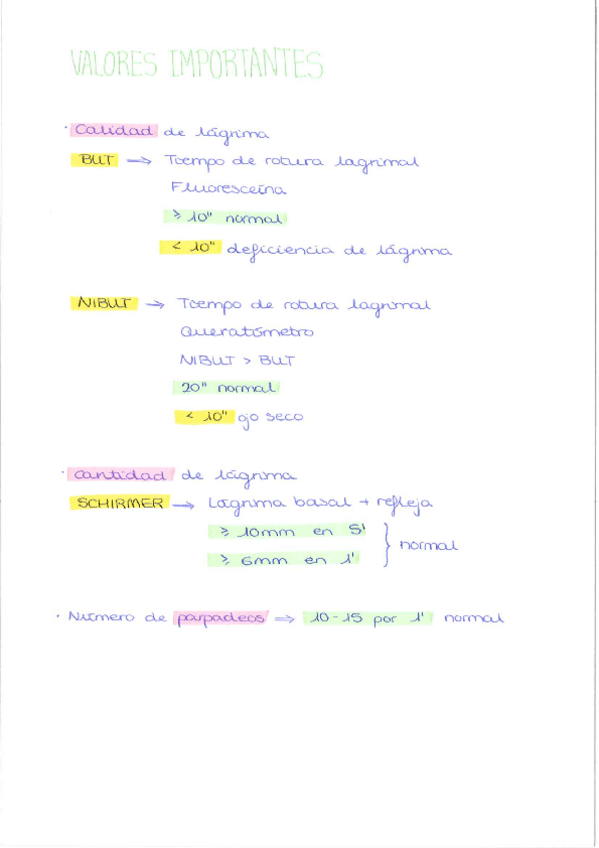 VALORES IMPORTANTES
· Calidad de lágrima
BUT → Tiempo de rotura lagrimal
Fluoresceína
≥ 10" normal
< 10" deficiencia de lágrima
NIBUT → Tiempo de rotura lagrimal
Queratómetro
NIBUT > BUT
20" normal
< 10" ojo seco
· Cantidad de lágrima
SCHIRMER → Lágrima basal + refleja
≥ 10mm en 5'
≥ 6mm en 1' } normal
· Número de parpadeos ⇒ 10-15 por 1' normal